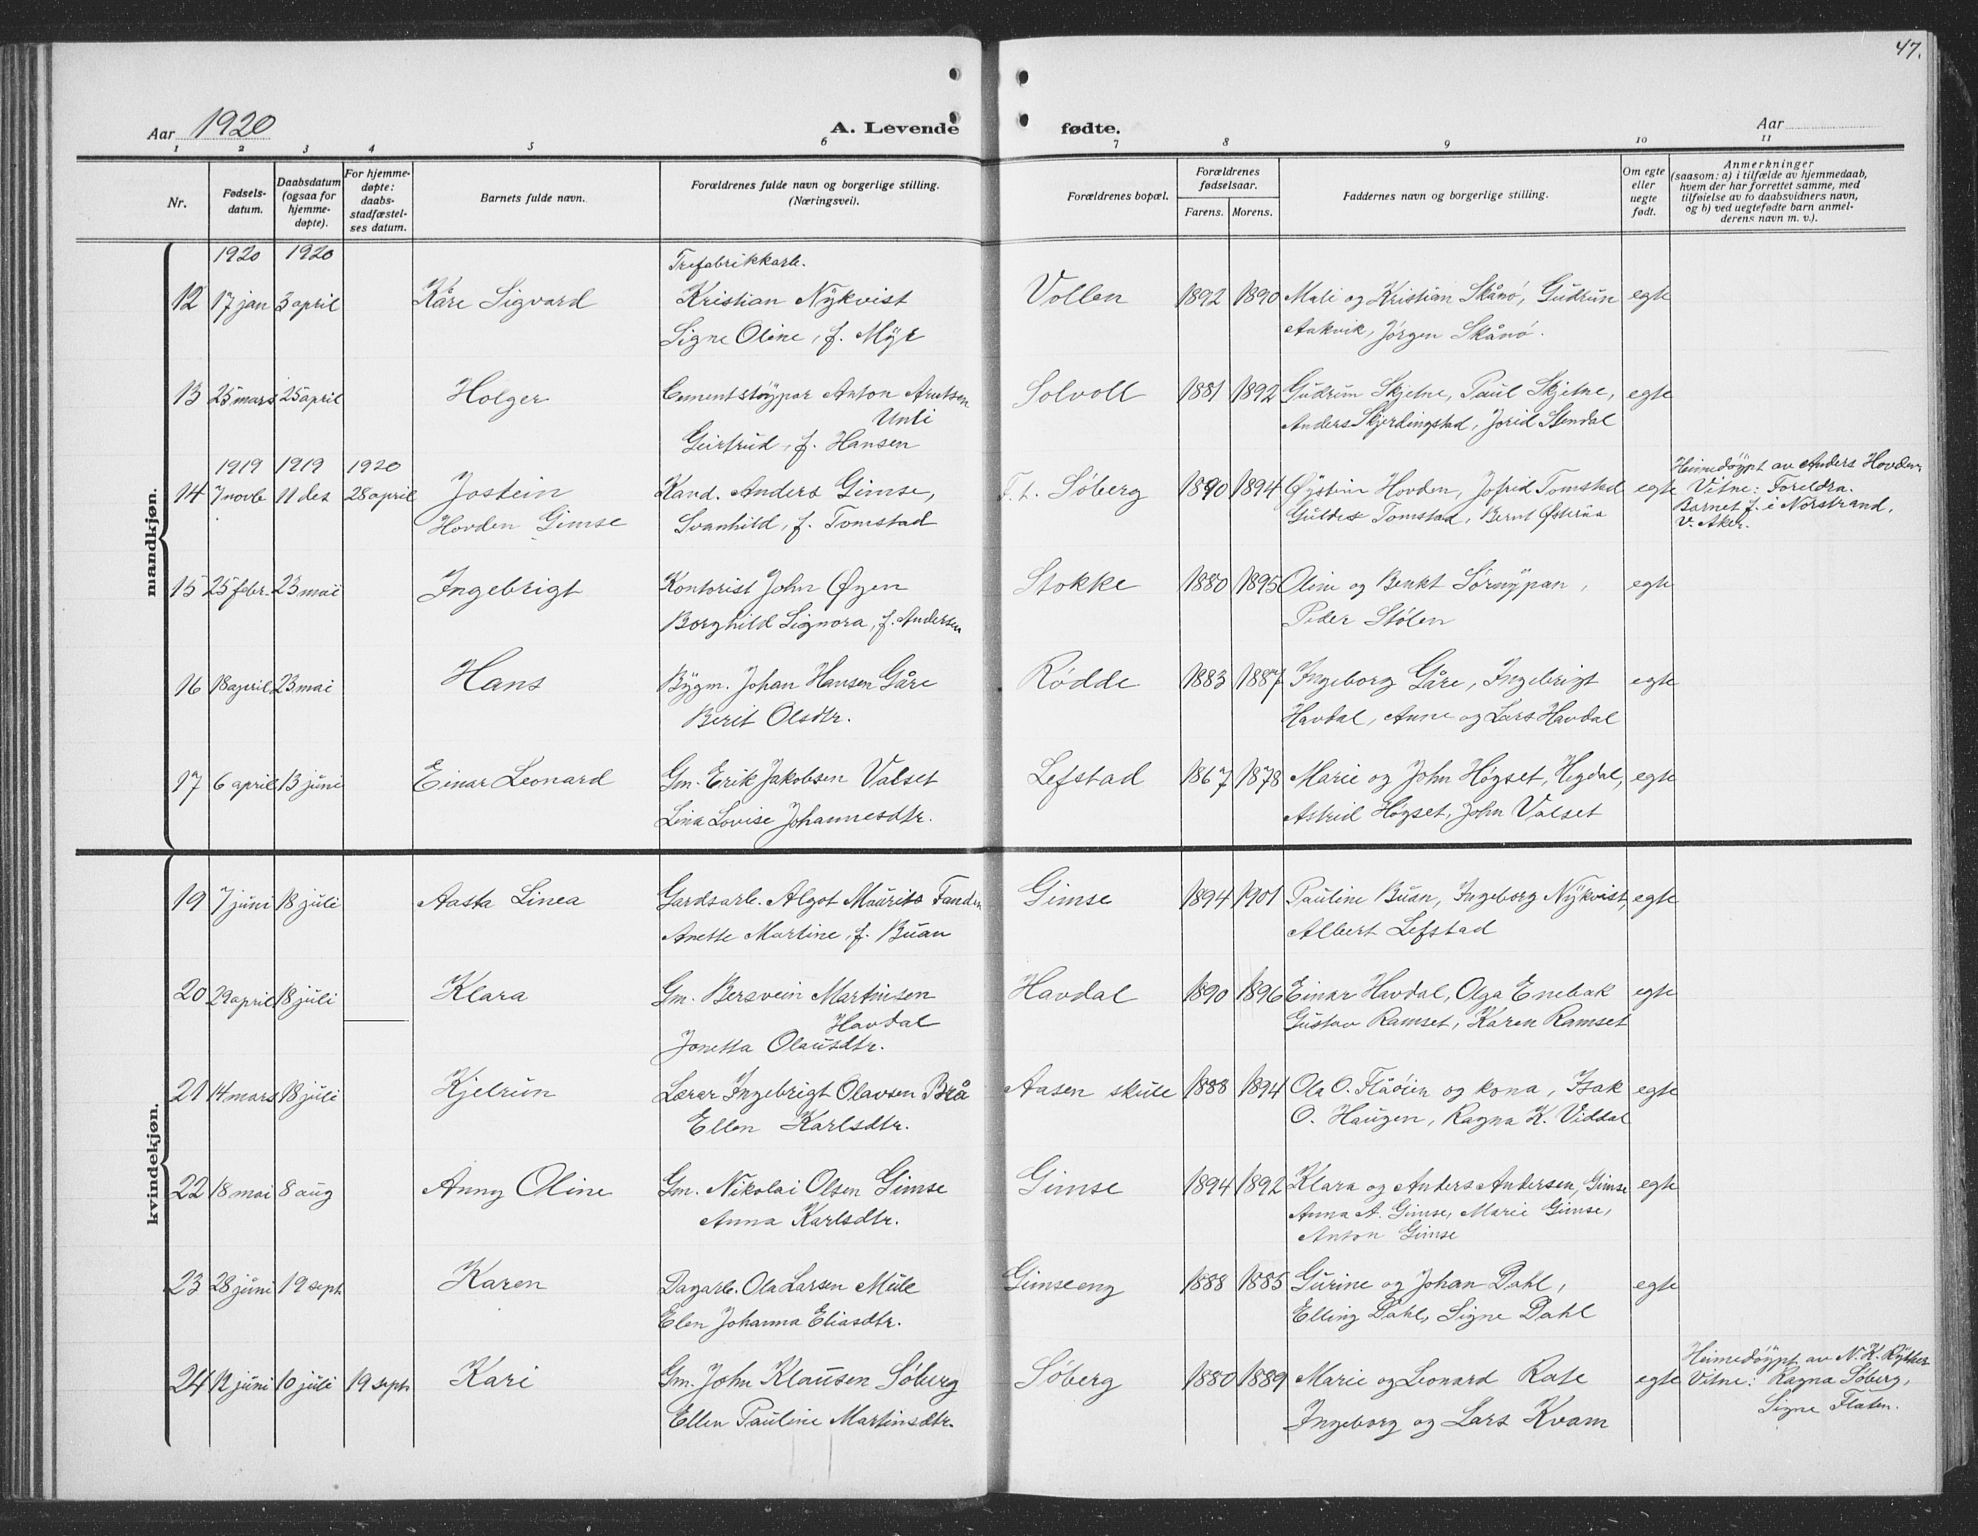 47.
Aar 1920 A. Levende fødte. Aar
1 2 3 4 5 6 7 8 9 10 11
Nr. Fødsels-datum. Daabsdatum (ogsaa for hjemme-døpte). For hjemme-døpte: daabs-stadfæstel-ses datum. Barnets fulde navn. Forældrenes fulde navn og borgerlige stilling. (Næringsvei). Forældrenes bopæl. Forældrenes fødselsaar. Farens. Morens. Faddernes navn og borgerlige stilling. Om egte eller uegte født. Anmerkninger (saasom: a) i tilfælde av hjemmedaab, hvem der har forrettet samme, med tilføielse av to daabsvidners navn, og b) ved uegtefødte barn anmel-derens navn m. v.).
mandkjøn.
1920 1920 Trefabrikkarb.
12 17 jan 3 april Kåre Sigvard Kristian Nykvist Vollen 1892 1890 Mali og Kristian Skånø, Gudrun egte
Signe Oline, f. Myr Aakvik, Jørgen Skånø.
13 25 mars 25 april Holger Cementstøypar Anton Arntsen Solvoll 1881 1892 Gudrun Skjetne, Paul Skjetne, egte
Unli Anders Skjerdingstad, Jorid Stendal
Geirtrud, f. Hansen
1919 1919 1920 Heimedøypt av Anders Hovden
14 7 novb 11 des 28 april Jostein Kand. Anders Gimse, F. t. Søberg 1890 1894 Øystein Hovden, Jofrid Tomstad egte Vitne: Foreldra.
Hovden Gimse Svanhild, f. Tomstad Tomstad, Bernt Barnet f. i Norstrand,
V. Aker.
15 25 febr. 23 mai Ingebrigt Kontorist John Øyen Stokke 1880 1895 Oline og Benkt Sørnypan, egte
Borghild Signora, f. Andersen Peder Stølen
16 18 april 23 mai Hans Bygm. Johan Hansen Gåre Rødde 1883 1887 Ingeborg Gåre, Ingebrigt egte
Berit Olsdtr. Havdal, Anne og Lars Havdal
17 6 april 13 juni Einar Leonard Gm. Erik Jakobsen Valset Lefstad 1867 1878 Marie og John Høgset, Hegdal, egte
Lina Lovise Johannesdtr. Astrid Høgset, John Valset
kvindekjøn.
19 7 juni 18 juli Aasta Linea Gardsarb. Algot Maurits Fandin Gimse 1894 1901 Pauline Buan, Ingeborg Nykvist, egte
Anette Martine, f. Buan Albert Lefstad
20 29 april 18 juli Klara Gm. Bersvein Martinsen Havdal 1890 1896 Einar Havdal, Olga Enebak egte
Havdal Gustav Ramset, Karen Ramset
Jonetta Olausdtr.
21 14 mars 18 juli Kjelrun Lærar Ingebrigt Olavsen Brå Aasen skule 1888 1894 Ola O. Flåøien og kona, Isak egte
Ellen Karlsdtr. O. Haugen, Ragna K. Viddal
22 18 mai 8 aug Anny Oline Gm. Nikolai Olsen Gimse Gimse 1894 1892 Klara og Anders Andersen, Gimse egte
Anna Karlsdtr. Anna A. Gimse, Marie Gimse,
Anton Gimse
23 28 juni 19 sept Karen Dagarb. Ola Larsen Mule Gimseeng 1888 1885 Gurine og Johan Dahl, egte
Elen Johanna Eliasdtr. Elling Dahl, Signe Dahl
Heimedøypt av N. K. Ryther
24 12 juni 10 juli 19 sept Kari Gm. John Klausen Søberg Søberg 1880 1889 Marie og Leonard Rate egte Vitne: Ragna Søberg,
Ellen Pauline Martinsdtr. Ingeborg og Lars Kvam Signe Flaten.